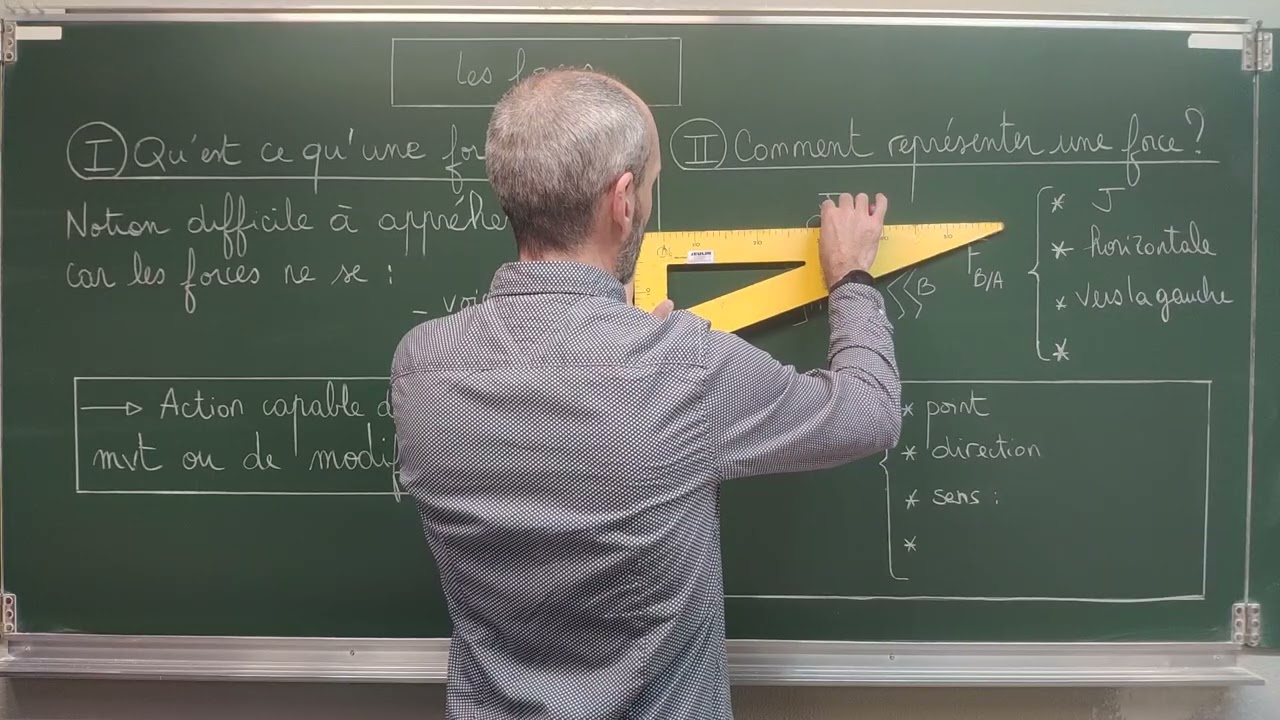 Les
I Qu'est ce qu'une
Notion difficile à
car les forces ne se :
-
→ Action capable
mvt ou de
II Comment représenter une force ?
JEULIN
B
B/A
* J
* horizontale
* vers la gauche
*
* point
* direction
* sens :
*